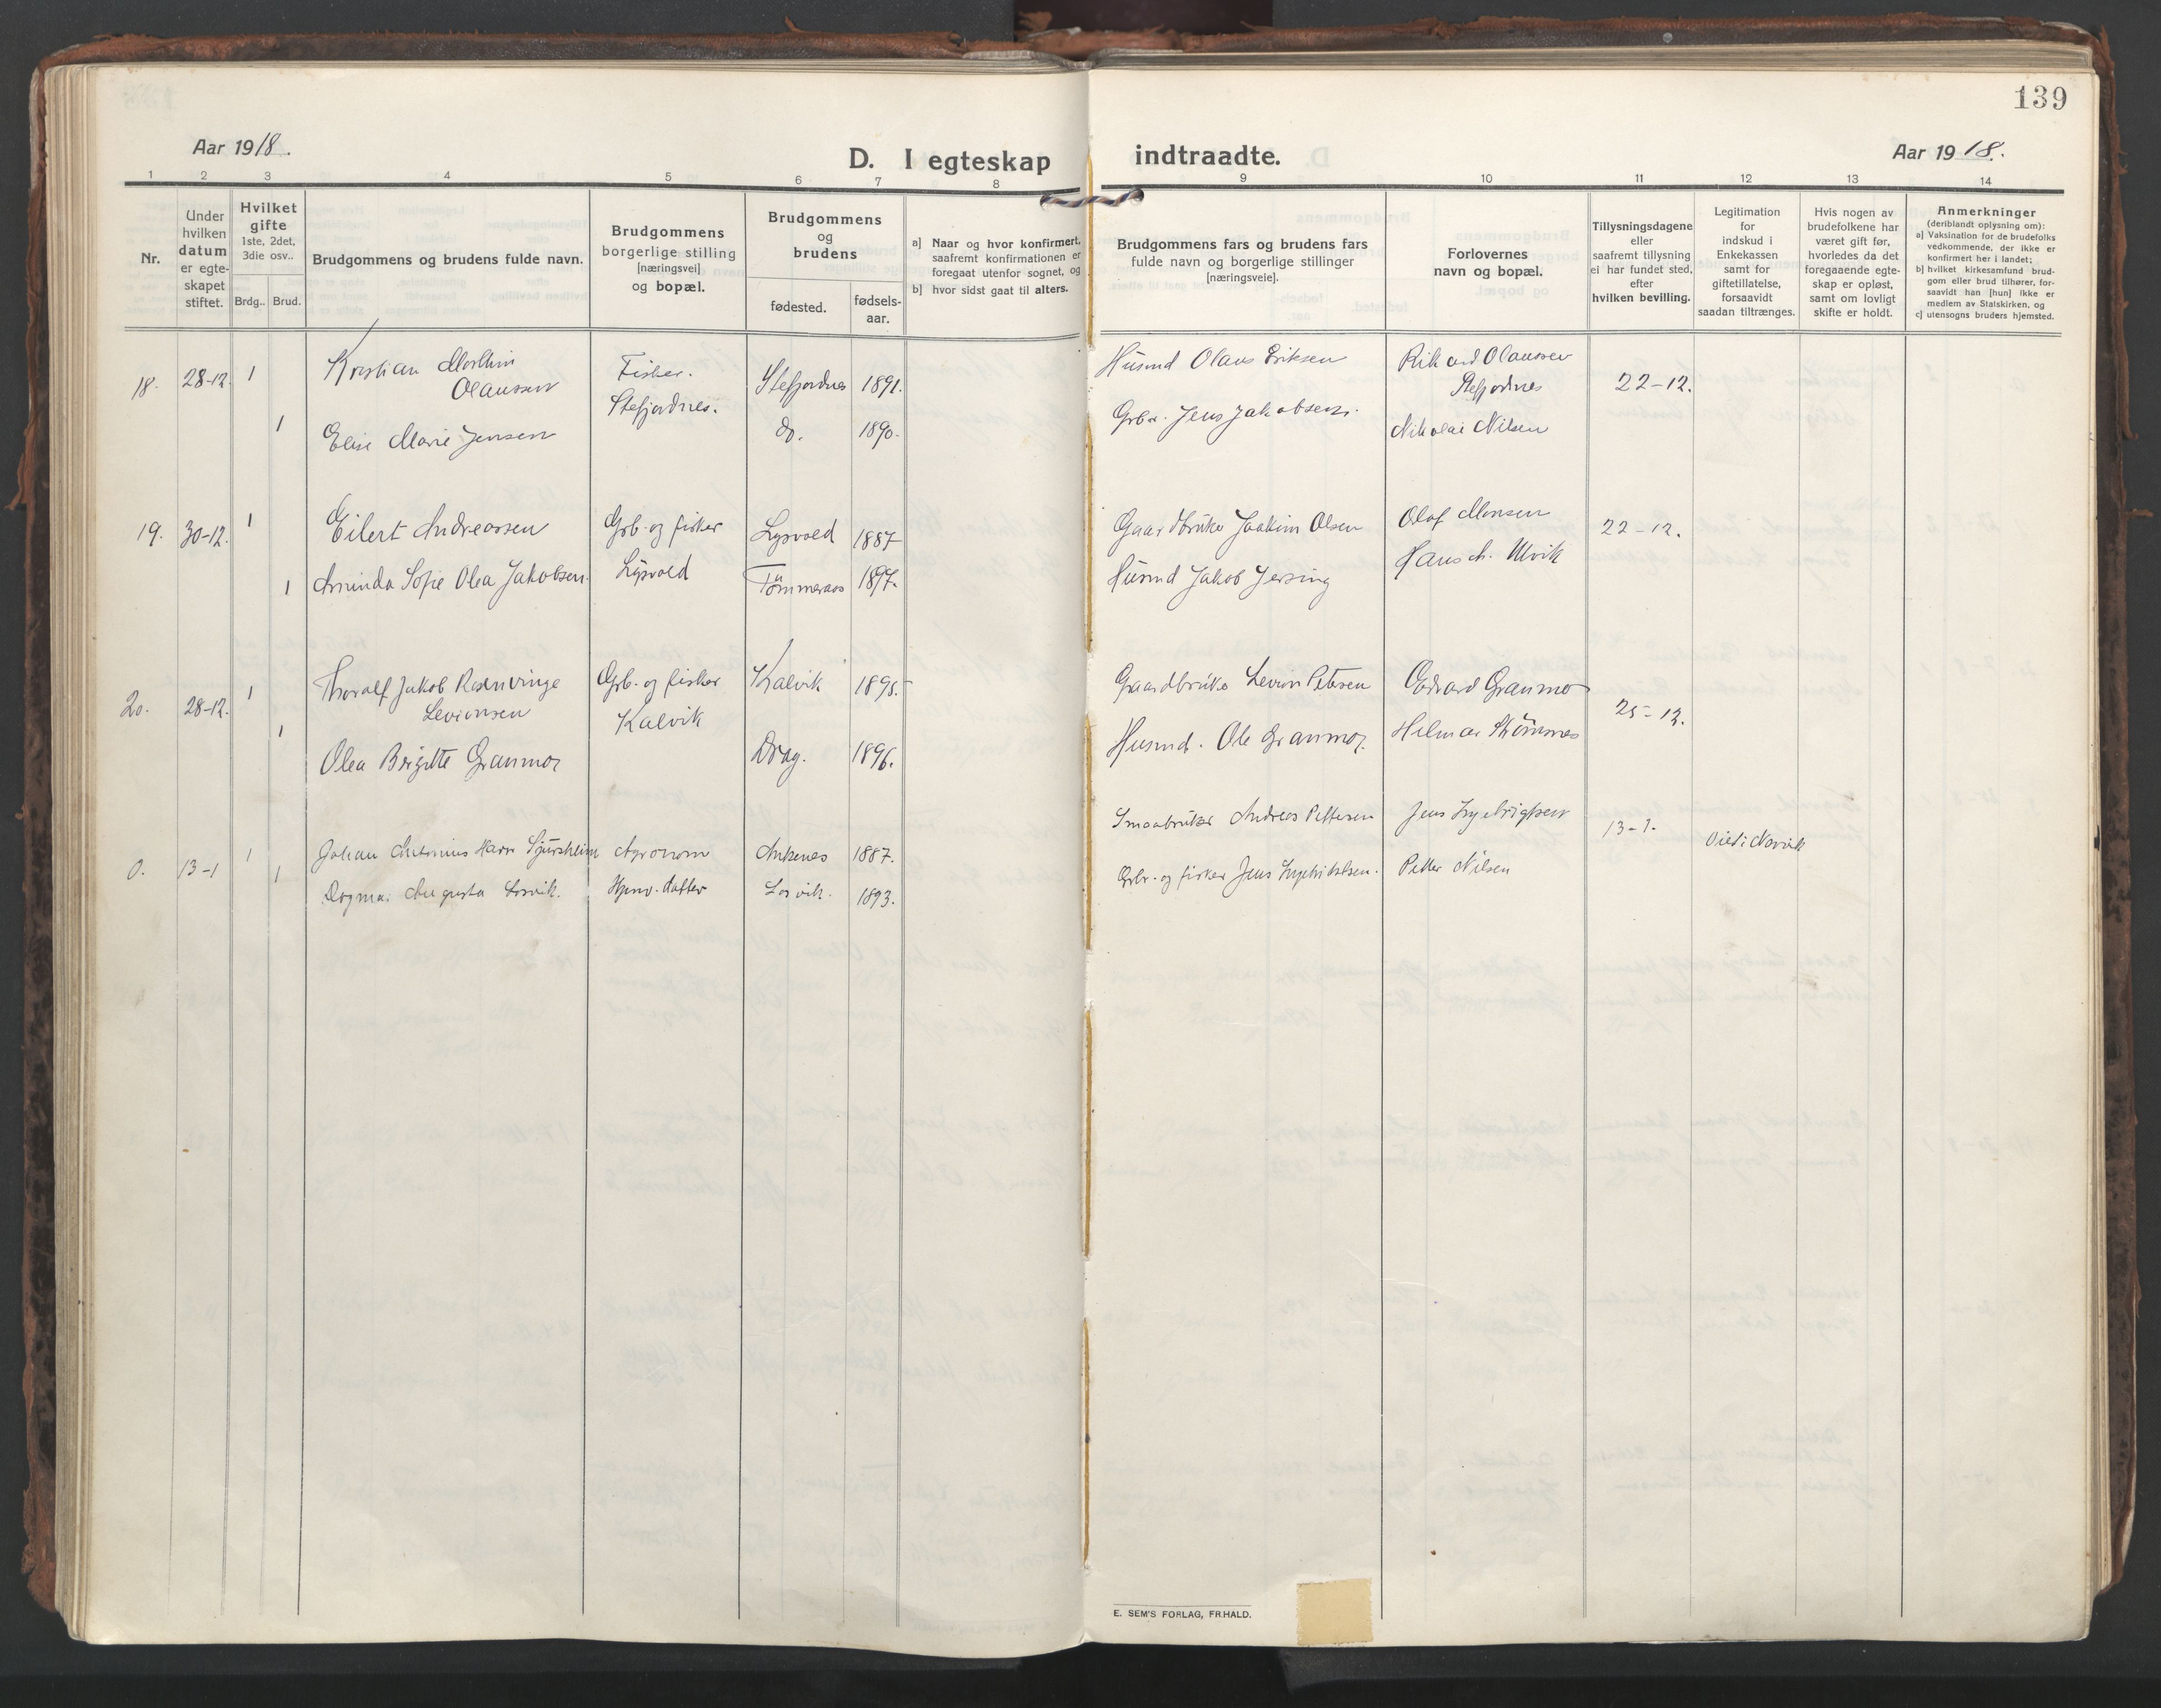 139
Aar 1918.
D. I egteskap
indtraadte.
Aar 1918.
1 2 3 4 5 6 7 8 9 10 11 12 13 14
Nr.
Under
hvilken
datum
er egte-
skapet
stiftet.
Hvilket
gifte
1ste, 2det,
3die osv..
Brdg.. Brud.
Brudgommens og brudens fulde navn.
Brudgommens
borgerlige stilling
[næringsvei]
og bopæl.
Brudgommens
og
brudens
fødested.
fødsels-
aar.
a] Naar og hvor konfirmert,
saafremt konfirmationen er
foregaat utenfor sognet, og
b] hvor sidst gaat til alters.
Brudgommens fars og brudens fars
fulde navn og borgerlige stillinger
[næringsveie].
Forlovernes
navn og bopæl.
Tillysningsdagene
eller
saafremt tillysning
ei har fundet sted,
efter
hvilken bevilling.
Legitimation
for
indskud i
Enkekassen
samt for
giftetillatelse,
forsaavidt
saadan tiltrænges.
Hvis nogen av
brudefolkene har
været gift før,
hvorledes da det
foregaaende egte-
skap er opløst,
samt om lovligt
skifte er holdt.
Anmerkninger
(deriblandt oplysning om):
a] Vaksination for de brudefolks
vedkommende, der ikke er
konfirmert her i landet;
b] hvilket kirkesamfund brud-
gom eller brud tilhører, for-
saavidt han [hun] ikke er
medlem av Statskirken, og
c] utensogns bruders hjemsted.
18. 28-12. 1 Kristian
Olaussen
Fisker.
Stefjordnes.
Stefjordnes 1891.
Husmd Olaus Eriksen
Rikard Olaussen
Stefjordnes
22-12.
1 Elise Marie Jensen
do. 1890.
Grbr. Jens Jakobsen.
Nikolai Nilsen
19. 30-12. 1 Eilert Andreassen
Grb. og fisker
Lysvold
Lysvold 1887
Gaardbruker Joakim Olsen
Olaf Monsen
22-12.
1 Arminda Sofie Olea Jakobsen.
Tømmeraas 1897.
Husmd Jakob Jersing
Hans A. Ulvik
20. 28-12. 1 Thoralf Jakob Rosenvinge
Levionsen
Grb. og fisker
Kalvik
Kalvik 1895.
Gaardbruker Levion Petersen
Edvard Granmo
25-12.
1 Olea Birgitte Granmo
Drag. 1896.
Husmd. Ole Granmo.
Hilmar Strømnes
0. 13-1 1 Johan Antonius Harr Sjursheim
Agronom
Ankenes 1887.
Smaabruker Andreas Pettersen
Jens Ingebrigtsen
13-1.
Viet i Narvik
1 Dagmar Augusta Losvik.
datter
Losvik. 1893.
Grbr. og fisker Jens Ingebrigtsen.
Petter Nilsen
E. SEM'S FORLAG, FR.HALD.